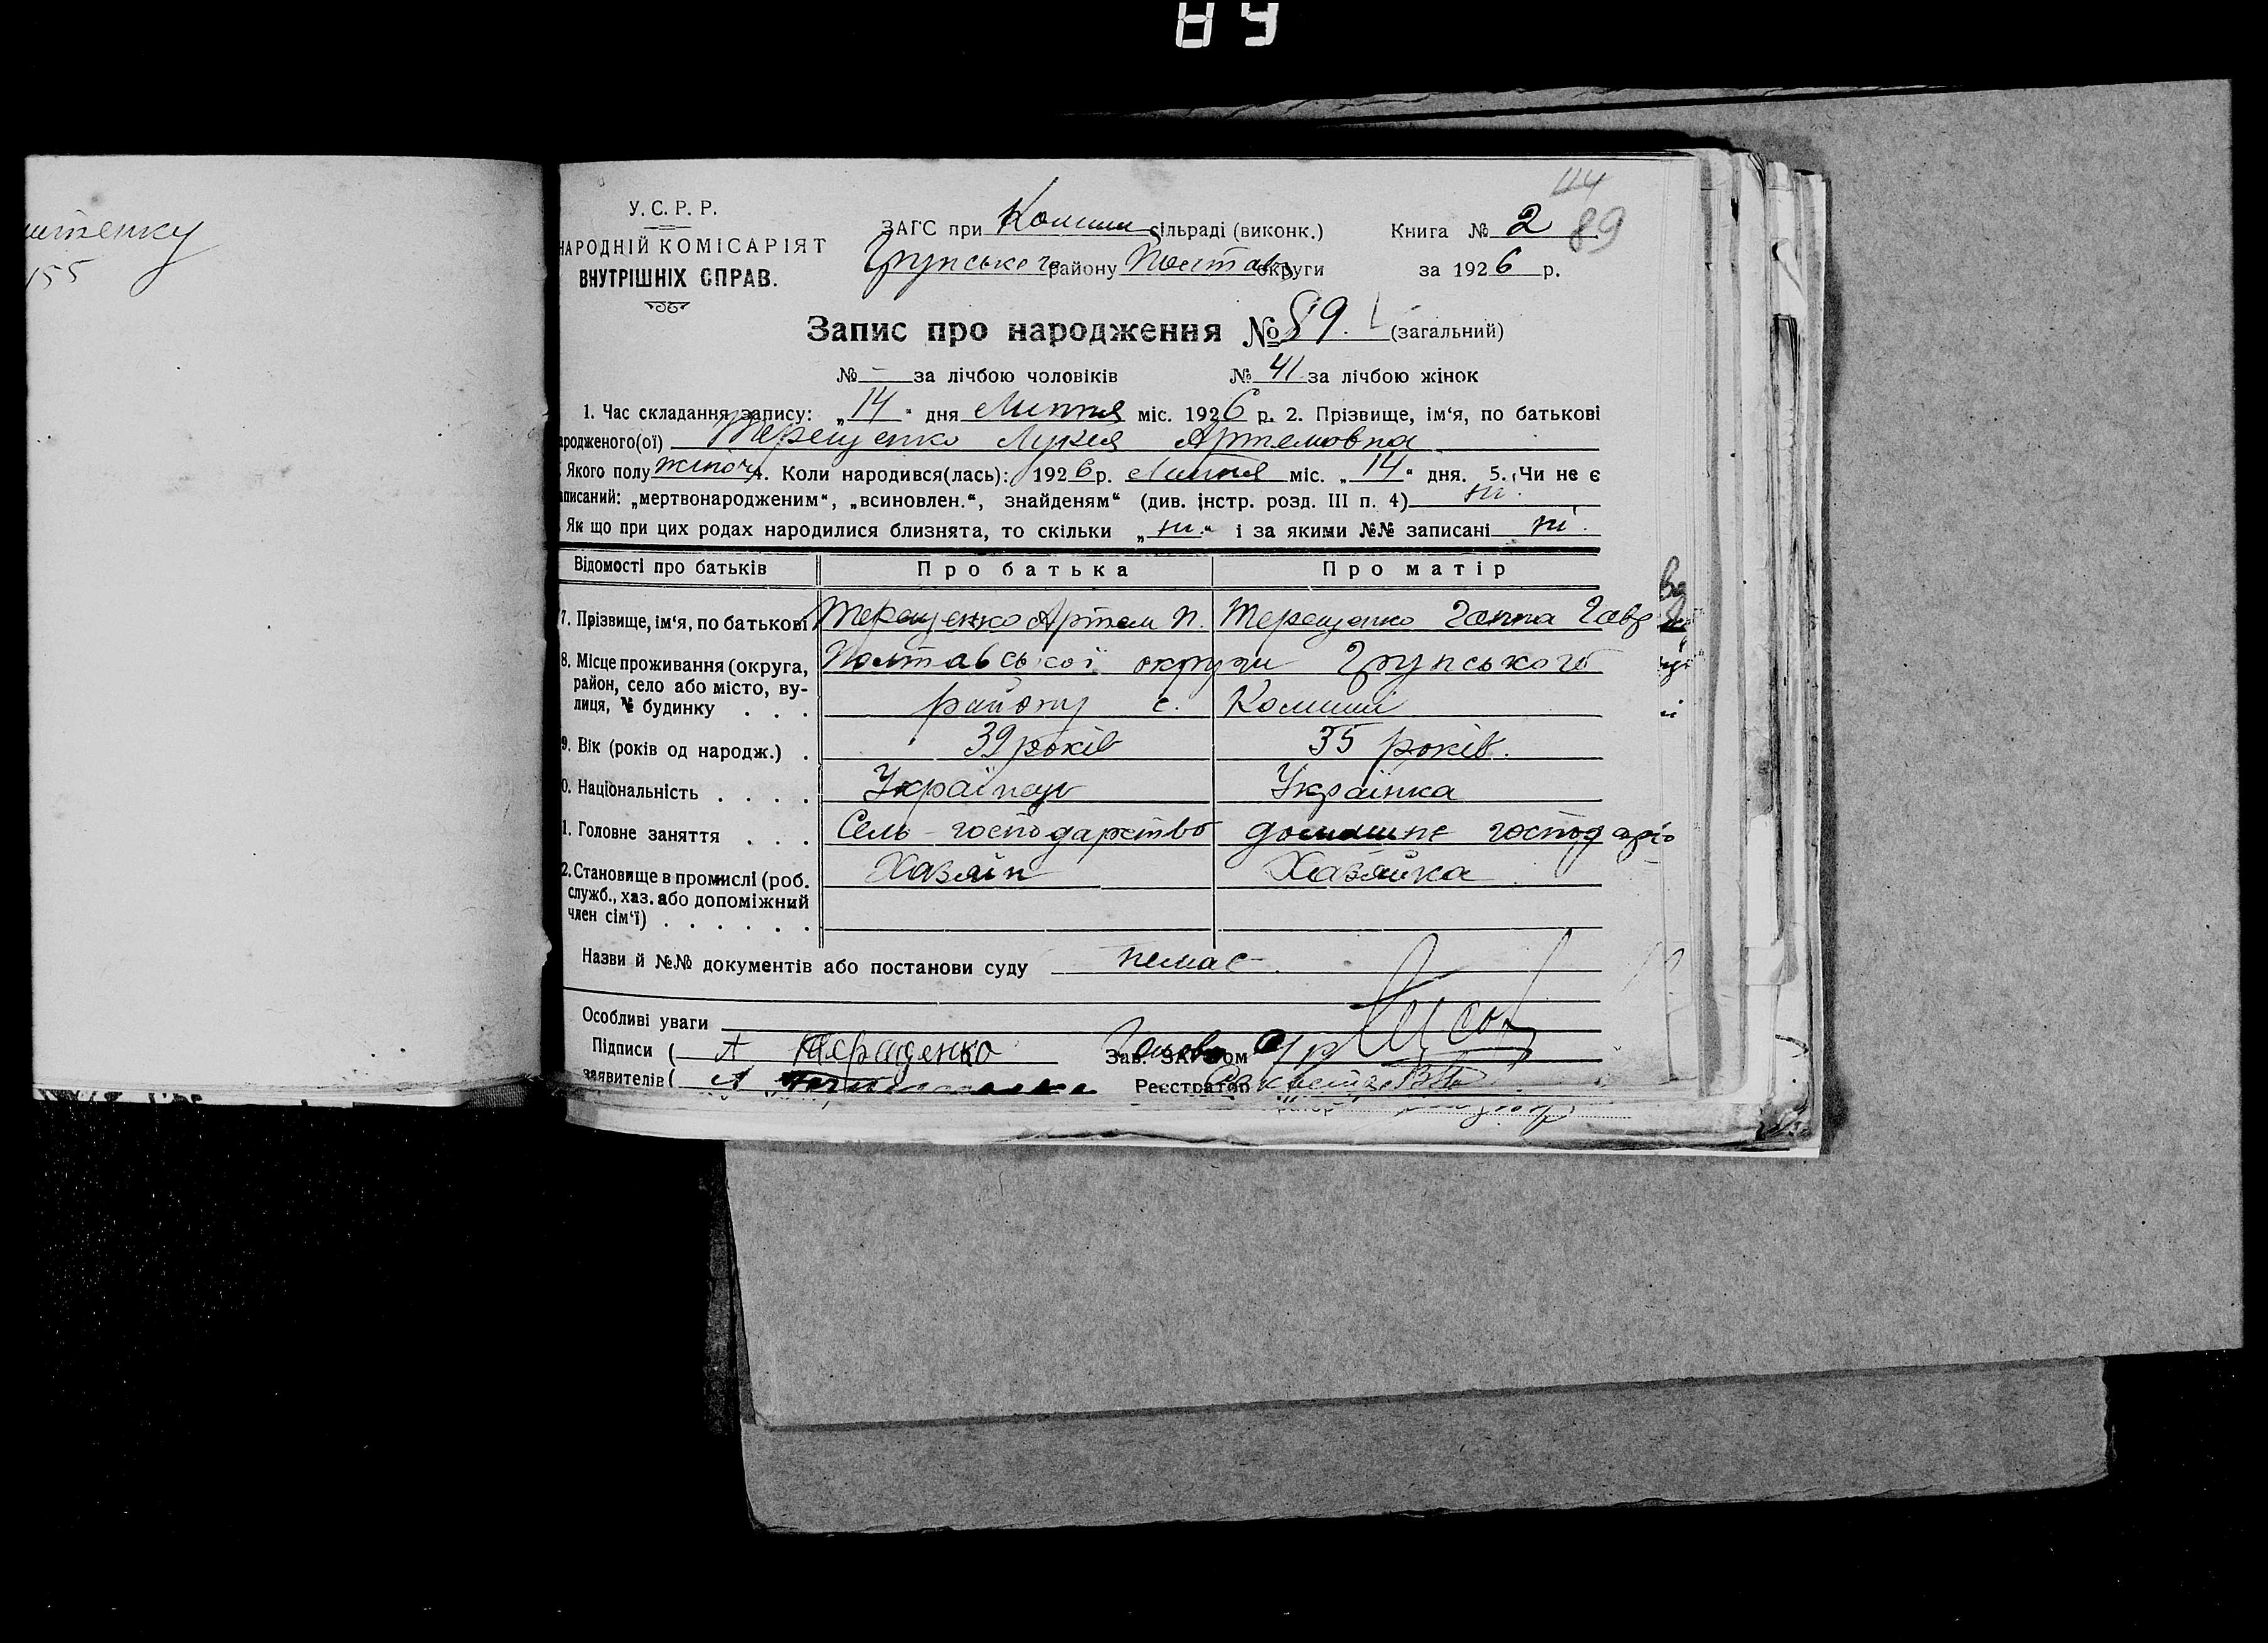 89
У. С. Р. Р.
НАРОДНІЙ КОМІСАРІЯТ
ВНУТРІШНІХ СПРАВ.
114
89
ЗАГС при Комиш сільраді (виконк.) Книга № 2
Грунського району Полтав округи за 1926 р.
Запис про народження № 89. (загальний)
№ - за лічбою чоловіків № 41 за лічбою жінок
1. Час складання запису: „14" дня Липня міс. 1926 р. 2. Прізвище, ім'я, по батькові
ародженого(ої) Терещенко Лукія Артемовна
Якого полу жіноч 4. Коли народився(лась): 1926 р. Липня міс. „14" дня. 5. Чи не є
аписаний: „мертвонародженим", „всиновлен.", знайденям" (див. інстр. розд. III п. 4) ні.
Як що при цих родах народилися близнята, то скільки „ні." і за якими №№ записані ні.
Відомості про батьків Про батька Про матір
7. Прізвище, ім'я, по батькові Терещенко Артем П. Терещенко Ганна Гавр
8. Місце проживання (округа, район, село або місто, вулиця, № будинку . . . Полтавської округи Грунського
району с. Комиші
9. Вік (років од народж.) . 39 років 35 років.
0. Національність . . . . Українець Українка
1. Головне заняття . . . Сель-господарство домашне господар
2. Становище в промислі (роб. Хазяїн Хазяйка
служб., хаз. або допоміжний
член сім'ї) . . . . . .
Назви й №№ документів або постанови суду немає.
Особливі уваги
Підписи ( А Терещенко Зав. ЗАГСом
заявителів ( А Реєстратор
итенку
155